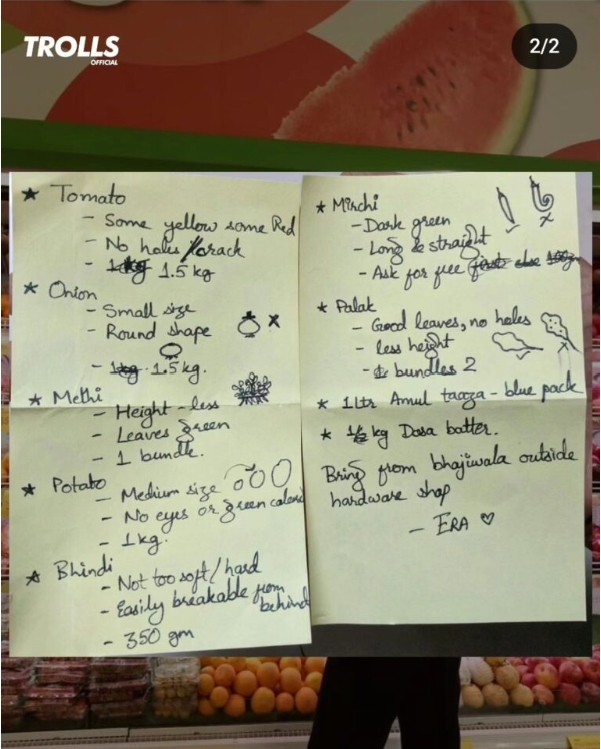 TROLLS
OFFICIAL
2/2
★ Tomato
- Some yellow some Red
- No holes / crack
- 1kg 1.5 kg
★ Onion
- Small size
- Round shape
- 1kg 1.5 kg.
★ Methi
- Height - less
- Leaves green
- 1 bundle.
★ Potato
- Medium size
- No eyes or green
- 1kg.
★ Bhindi
- Not too soft / hard
- Easily breakable from
behind
- 350 gm
★ Mirchi
- Dark green
- Long & straight
- Ask for free else
★ Palak
- Good leaves, no holes
- less height
- bundles 2
★ 1 ltr Amul taaza - blue pack
★ kg Dosa batter.
Bring from bhajiwala outside
hardware shop
- ERA ♡